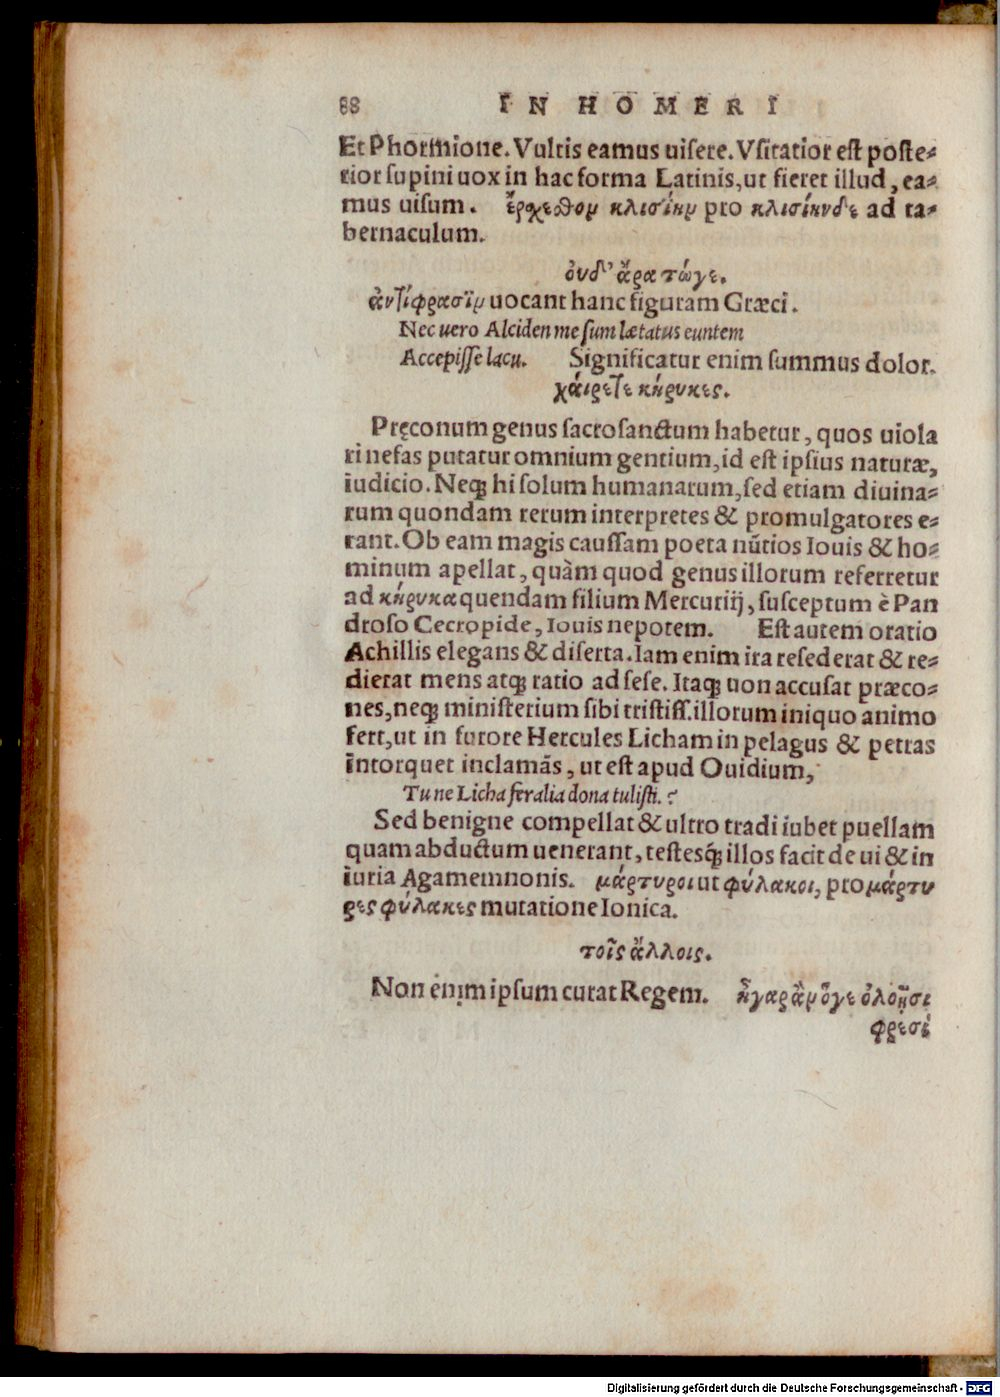 88 IN HOMERI
Et Phormione. Vultis eamus uisere. Vsitatior est poste-
rior supini uox in hac forma Latinis, ut fieret illud, ea-
mus uisum. ἔρχεσθον κλισίην pro κλισίηνδε ad ta-
bernaculum.
ὀυδ' ἄρα τώγε.
ἀντίφρασιν uocant hanc figuram Græci.
Nec uero Alciden me sum lætatus euntem
Accepisse lacu. Significatur enim summus dolor.
χάιρετε κήρυκες.
Pręconum genus sacrosanctum habetur, quos uiola
ri nefas putatur omnium gentium, id est ipsius naturæ,
iudicio. Neq; hi solum humanarum, sed etiam diuina-
rum quondam rerum interpretes & promulgatores e-
rant. Ob eam magis caussam poeta nũtios Iouis & ho-
minum apellat, quàm quod genus illorum referretur
ad κήρυκα quendam filium Mercurij, susceptum è Pan
droso Cecropide, Iouis nepotem. Est autem oratio
Achillis elegans & diserta. Iam enim ira resederat & re-
dierat mens atq; ratio ad sese. Itaq; non accusat præco-
nes, neq; ministerium sibi tristiss. illorum iniquo animo
fert, ut in furore Hercules Licham in pelagus & petras
intorquet inclamãs, ut est apud Ouidium,
Tu ne Licha feralia dona tulisti.?
Sed benigne compellat & ultro tradi iubet puellam
quam abductum uenerant, testesq́; illos facit de ui & in
iuria Agamemnonis. μάρτυροι ut φύλακοι, pro μάρτυ
ρες φύλακες mutatione Ionica.
τοῖς ἄλλοις.
Non enim ipsum curat Regem. ἦ γαρ ἂν ὅγε ὀλοῇσι
φρεσὶ
Digitalisierung gefördert durch die Deutsche Forschungsgemeinschaft - DFG